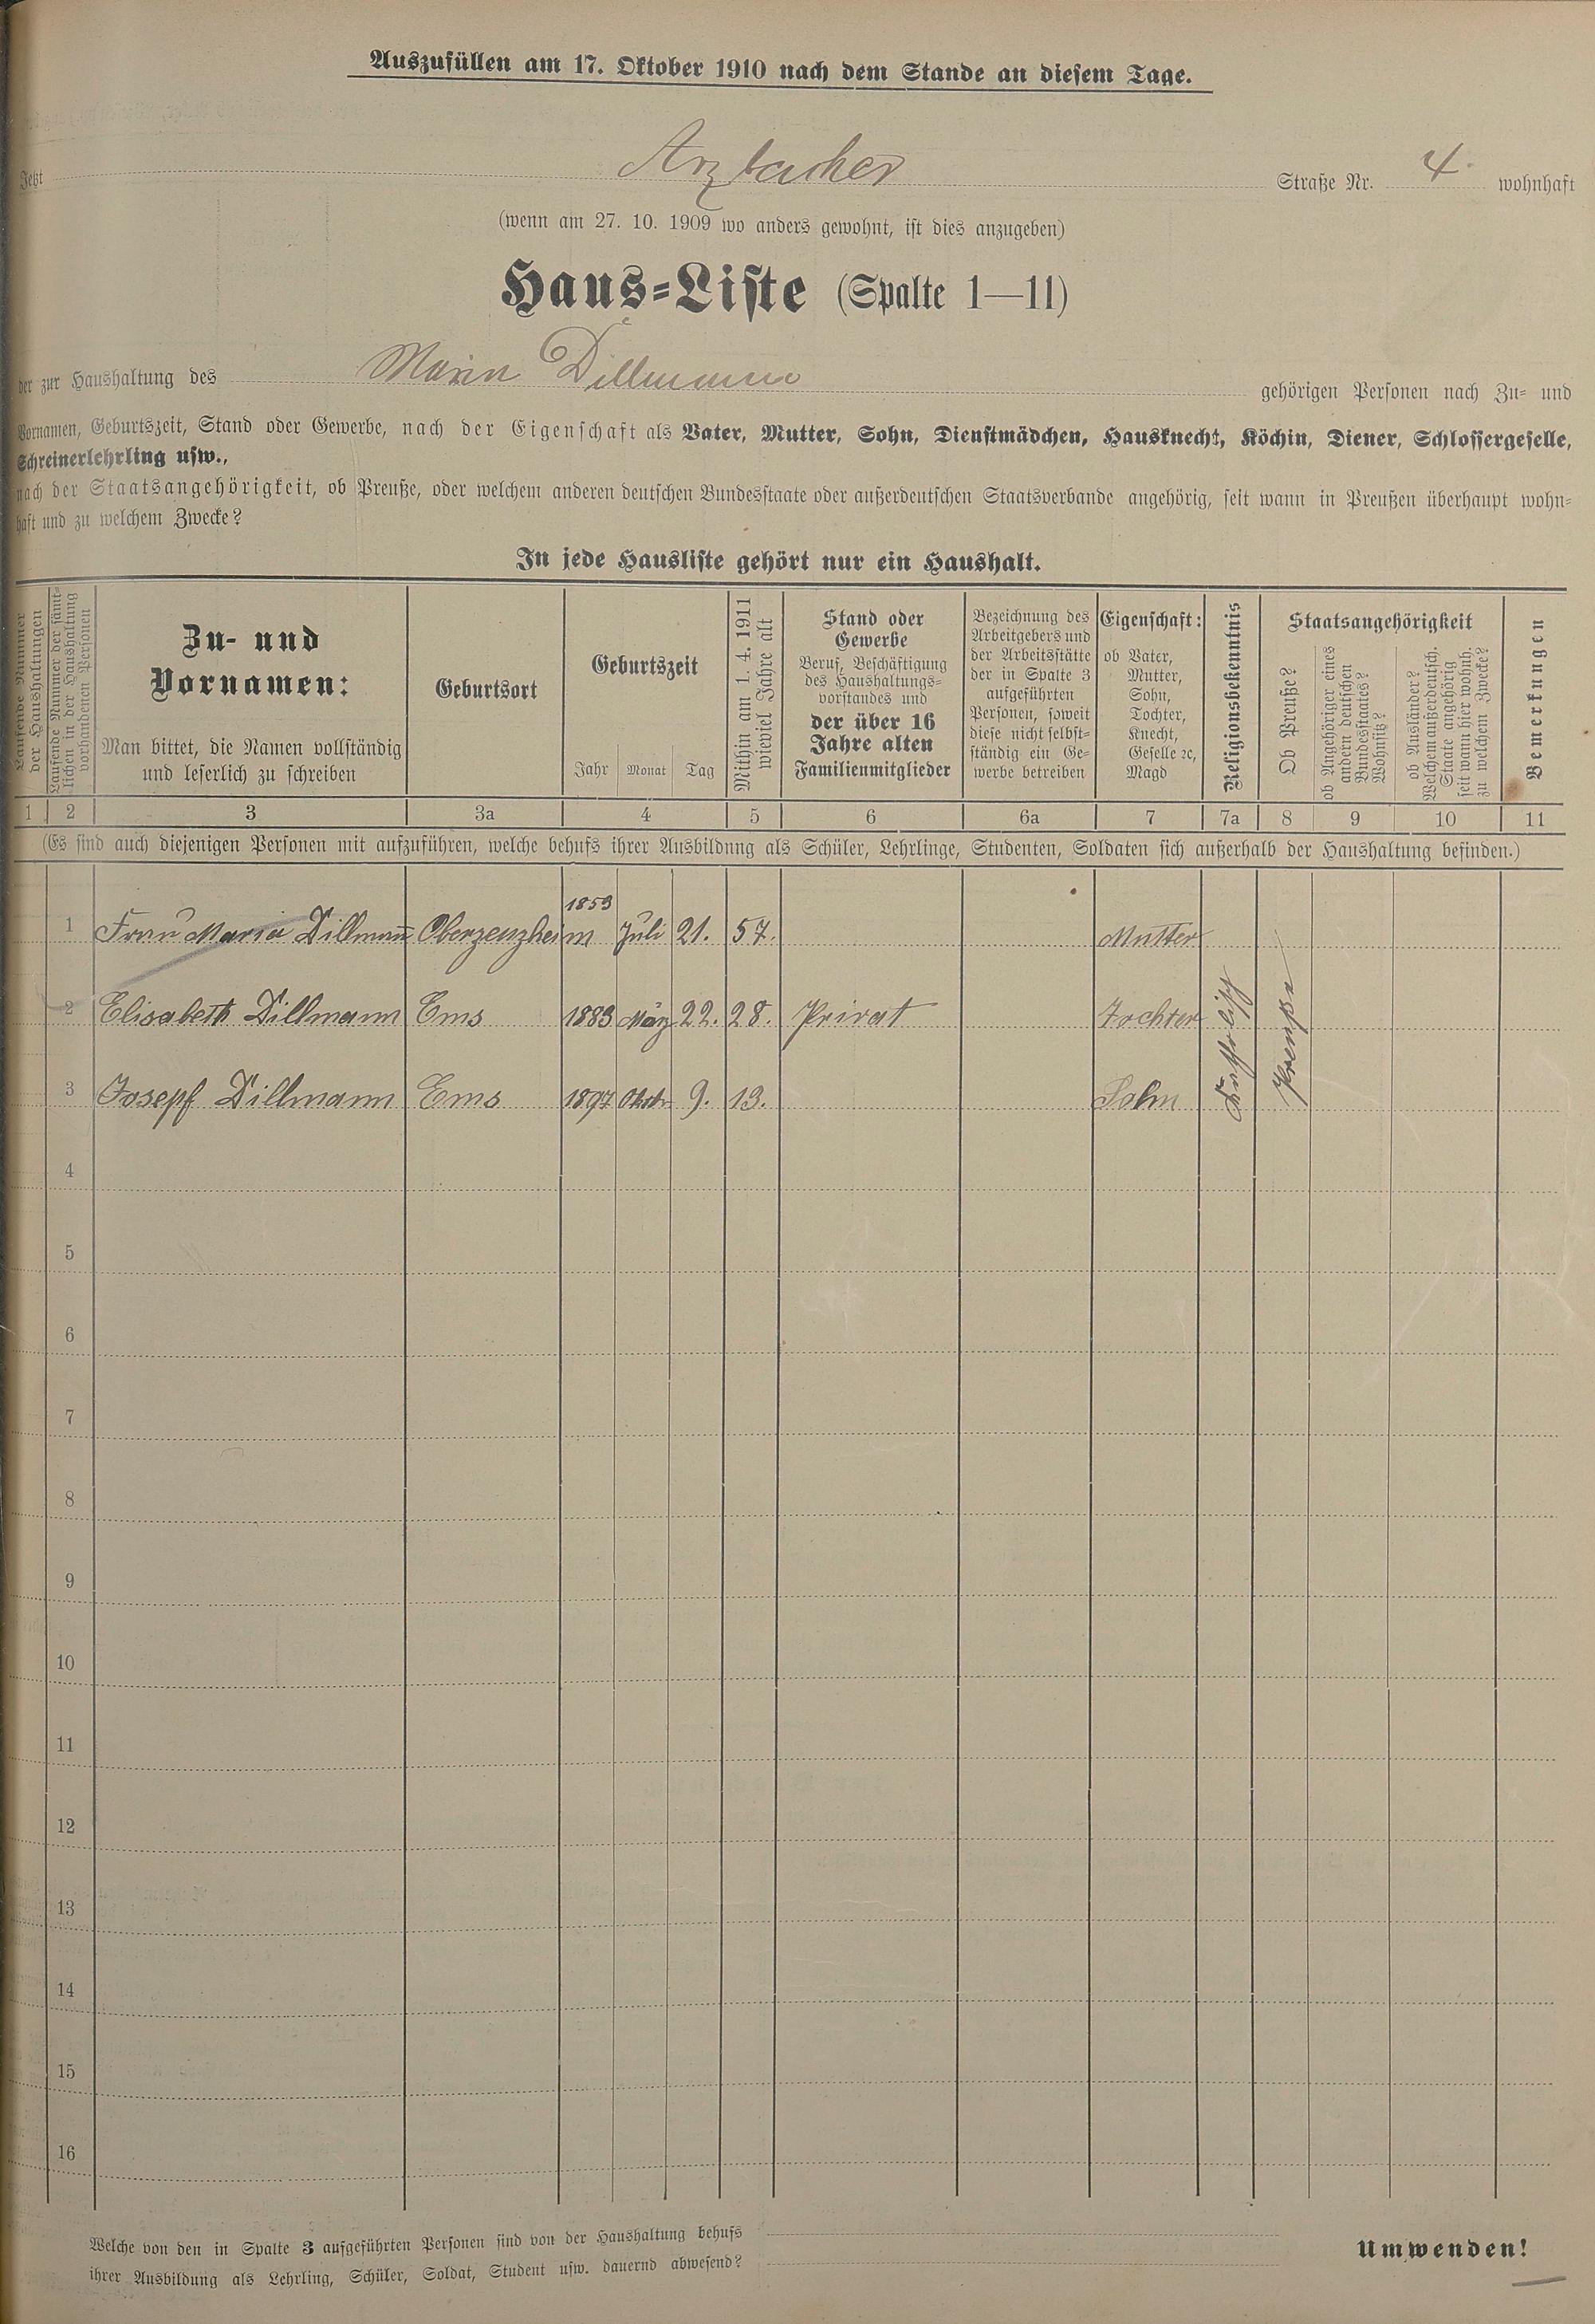 Auszufüllen am 17. Oktober 1910 nach dem Stande an diesem Tage.
Jetzt Arzbacher Straße Nr. 4. wohnhaft
(wenn am 27. 10. 1909 wo anders gewohnt, ist dies anzugeben)
Haus-Liste (Spalte 1—11)
der zur Haushaltung des Maria Dillmann gehörigen Personen nach Zu- und
Vornamen, Geburtszeit, Stand oder Gewerbe, nach der Eigenschaft als Vater, Mutter, Sohn, Dienstmädchen, Hausknecht, Köchin, Diener, Schlossergeselle,
Schreinerlehrling usw.,
nach der Staatsangehörigkeit, ob Preuße, oder welchem anderen deutschen Bundesstaate oder außerdeutschen Staatsverbande angehörig, seit wann in Preußen überhaupt wohn-
haft und zu welchem Zwecke?
In jede Hausliste gehört nur ein Haushalt.
Laufende Nummer
der Haushaltungen
Laufende Nummer der sämt-
lichen in der Haushaltung
vorhandenen Personen
Zu- und
Vornamen:
Man bittet, die Namen vollständig
und leserlich zu schreiben
Geburtsort
Geburtszeit
Jahr Monat Tag
Mithin am 1. 4. 1911
wieviel Jahre alt
Stand oder
Gewerbe
Beruf, Beschäftigung
des Haushaltungs-
vorstandes und
der über 16
Jahre alten
Familienmitglieder
Bezeichnung des
Arbeitgebers und
der Arbeitsstätte
der in Spalte 3
aufgeführten
Personen, soweit
diese nicht selbst-
ständig ein Ge-
werbe betreiben
Eigenschaft:
ob Vater,
Mutter,
Sohn,
Tochter,
Knecht,
Geselle ꝛc,
Magd
Religionsbekenntnis
Staatsangehörigkeit
Ob Preuße?
ob Angehöriger eines
andern deutschen
Bundesstaates?
Wohnsitz?
ob Ausländer?
Welchem außerdeutsch.
Staate angehörig
seit wann hier wohnh.
zu welchem Zwecke?
Bemerkungen
1 2 3 3a 4 5 6 6a 7 7a 8 9 10 11
(Es sind auch diejenigen Personen mit aufzuführen, welche behufs ihrer Ausbildung als Schüler, Lehrlinge, Studenten, Soldaten sich außerhalb der Haushaltung befinden.)
1 Frau Maria Dillmann Oberzeuzheim 1853 Juli 21. 57. Mutter
2 Elisabeth Dillmann Ems 1883 März 22. 28. Privat Tochter
3 Josepf Dillmann Ems 1897 Oktbr 9. 13. Sohn
Katholisch
Preuße
4
5
6
7
8
9
10
11
12
13
14
15
16
Welche von den in Spalte 3 aufgeführten Personen sind von der Haushaltung behufs
ihrer Ausbildung als Lehrling, Schüler, Soldat, Student usw. dauernd abwesend?
Umwenden!